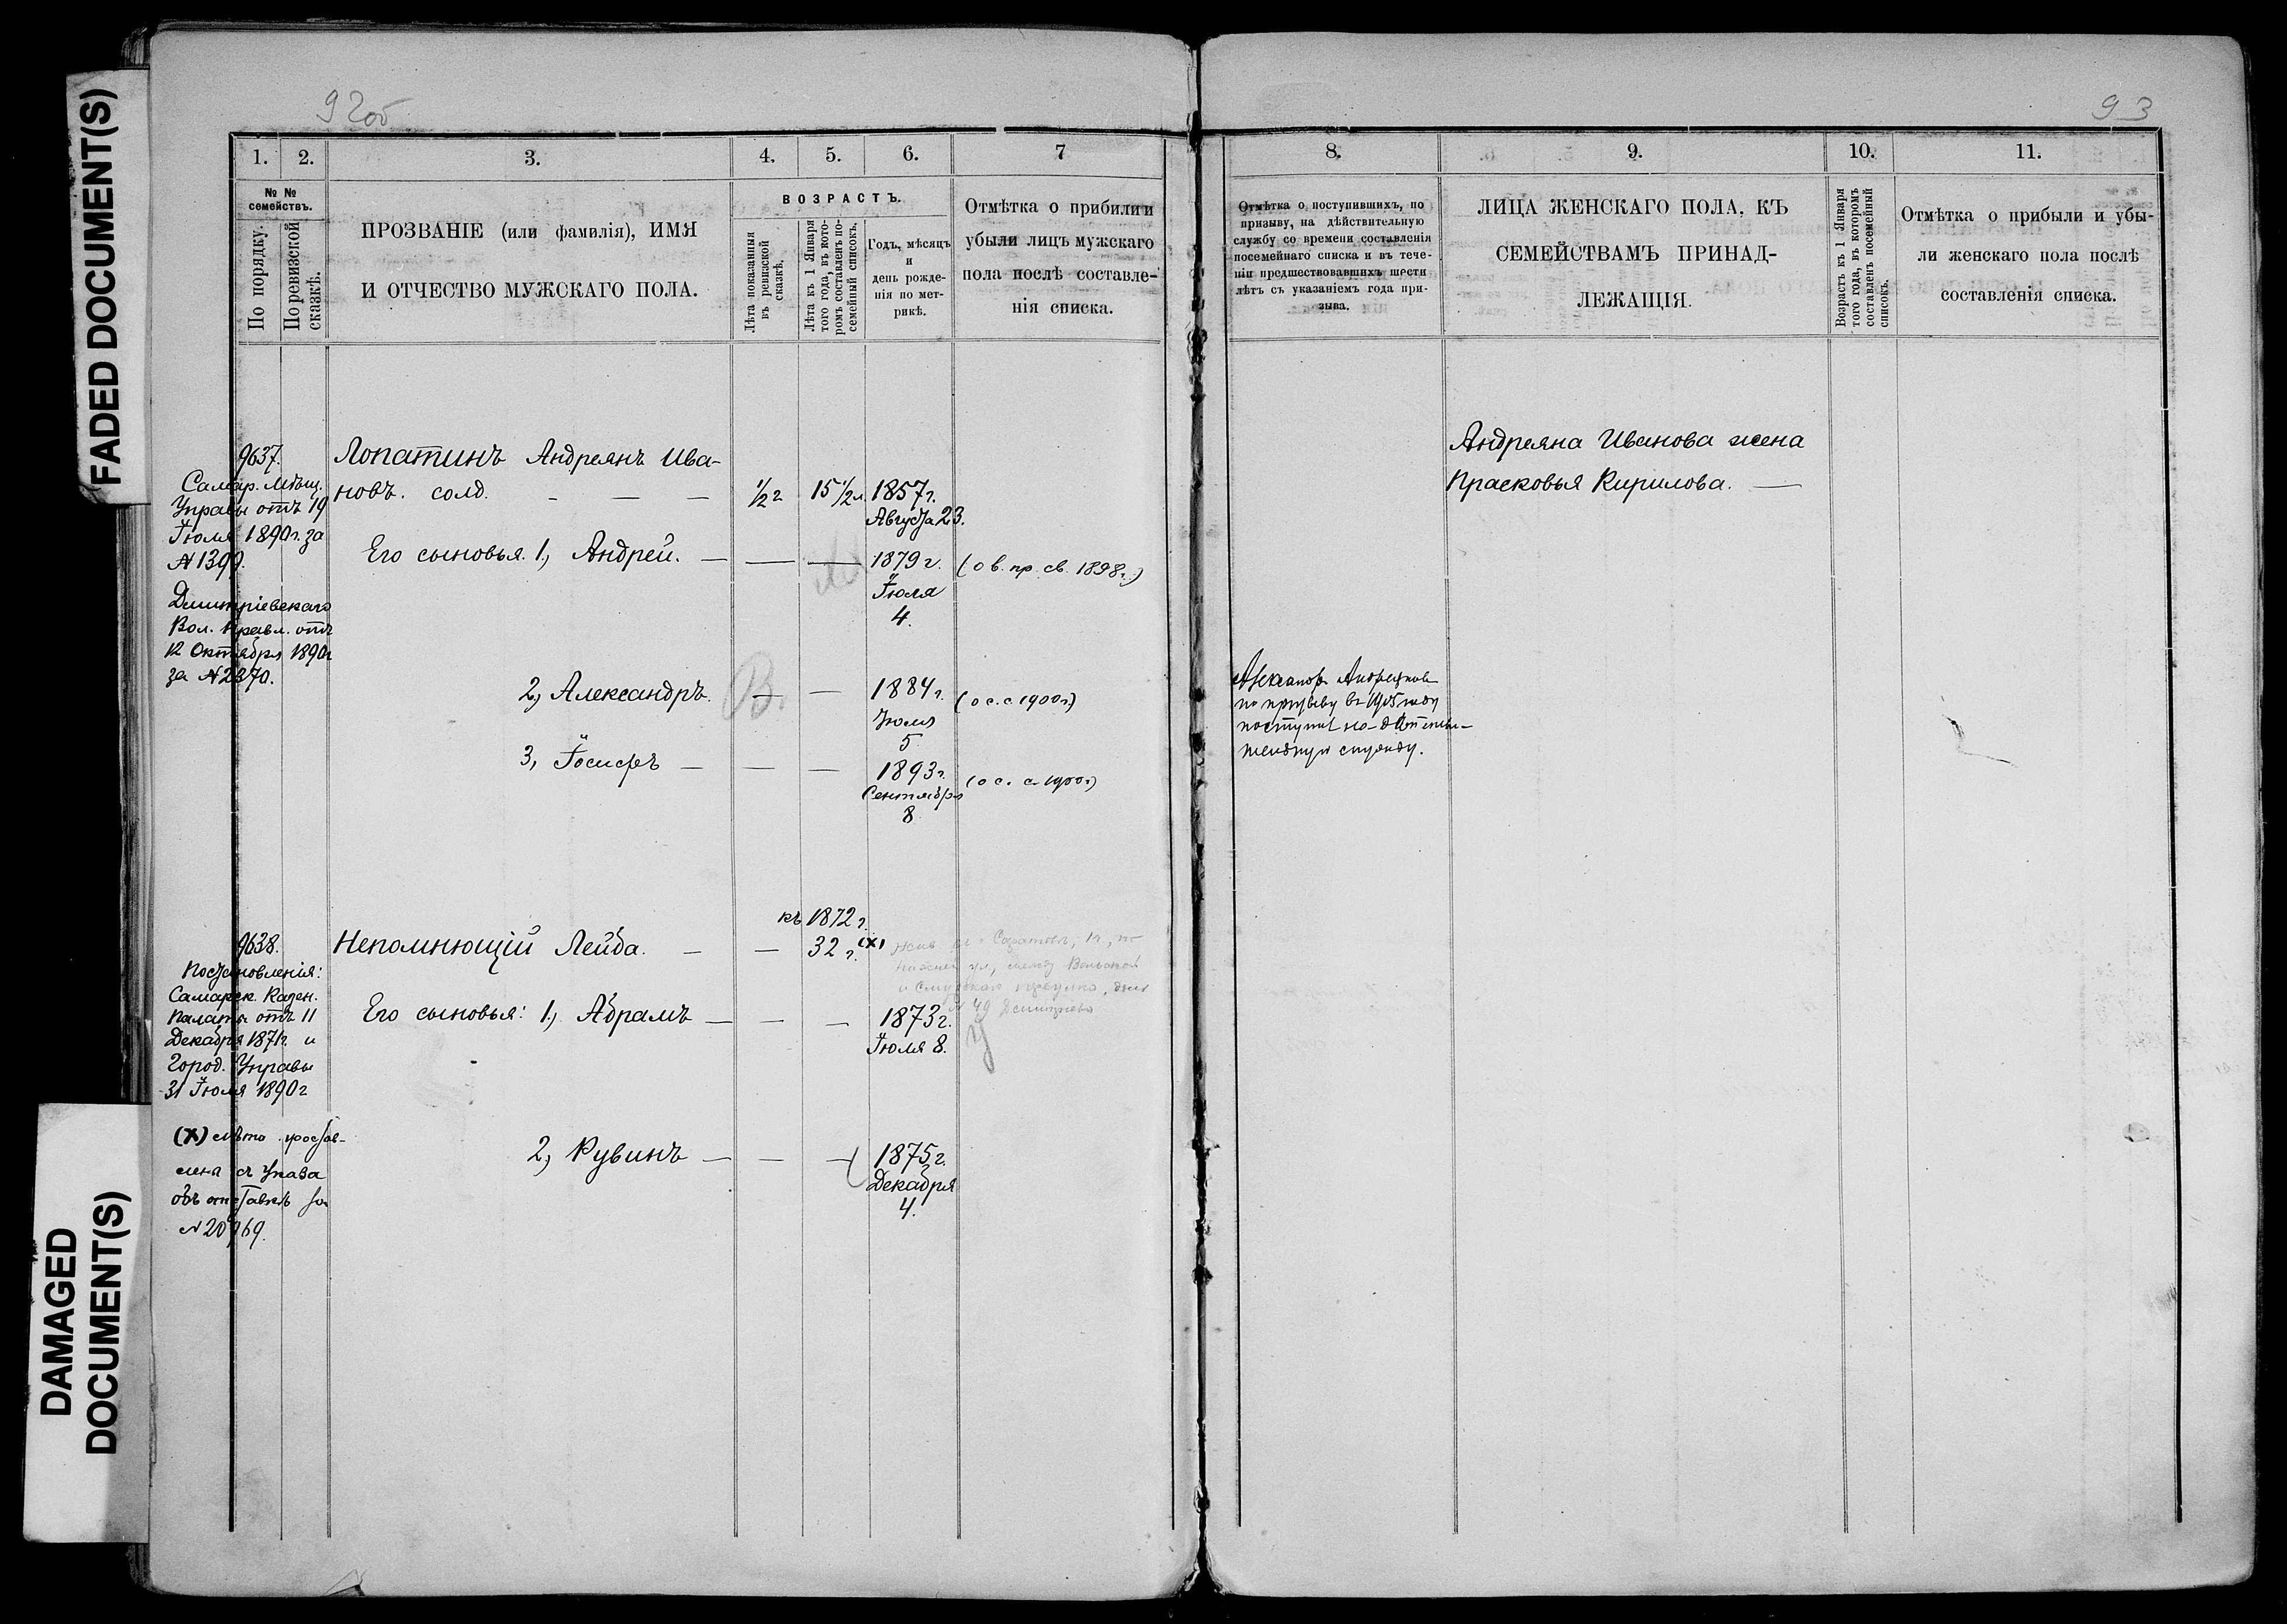 FADED DOCUMENT(S)
DAMAGED
DOCUMENT(S)
92об
1. 2. 3. 4. 5. 6. 7
№ №
семействъ.
По порядку.
По ревизской
сказкѣ.
ПРОЗВАНІЕ (или фамилія), ИМЯ
И ОТЧЕСТВО МУЖСКАГО ПОЛА.
ВОЗРАСТЪ.
Лѣта показанныя
въ ревизской
сказкѣ.
Лѣта къ 1 Января
того года, въ кото-
ромъ составленъ по-
семейный списокъ.
Годъ, мѣсяцъ
и
день рожде-
нія по мет-
рикѣ.
Отмѣтка о прибили и
убыли лицъ мужскаго
пола послѣ составле-
нія списка.
9637.
Самар. Мѣщ.
Управы отъ 19
Іюля 1890г. за
№ 1399.
Дмитріевскаго
Вол. Правл. отъ
12 Октября 1890г
за № 2370.
Лопатинъ Андреянъ Ива-
новъ. солд. — — — ½ г 15 ½ л. 1857г.
Августа 23.
Его сыновья. 1, Андрей. — — — 1879 г. (о в. пр. св. 1898г.)
Іюля
4.
2, Александръ. — — 1884г. (о с. с 1900г.)
Іюля
5
3, Іосифъ — — — 1893г. (о с. с 1900г.)
Сентября
8
9638.
Постановленія:
Самарск. Казен.
Палаты отъ 11
Декабря 1871г. и
Город. Управы
31 Іюля 1890г
(X) лѣта
съ Указа
объ отставкѣ за
№ 20969.
къ 1872 г.
Непомнющій Лейба. — — 32 г. (X)
Его сыновья: 1, Абрамъ — — — 1873г.
Іюля 8.
№ 49
2, Рувинъ — — — 1875г.
Декабря
4.
93
8. 9. 10. 11.
Отмѣтка о поступившихъ, по
призыву, на дѣйствительную
службу со времени составленія
посемейнаго списка и въ тече-
ніи предшествовавшихъ шести
лѣтъ съ указаніемъ года при-
зыва.
ЛИЦА ЖЕНСКАГО ПОЛА, КЪ
СЕМЕЙСТВАМЪ ПРИНАД-
ЛЕЖАЩІЯ.
Возрастъ къ 1 Января
того года, въ которомъ
составленъ посемейный
списокъ.
Отмѣтка о прибыли и убы-
ли женскаго пола послѣ
составленія списка.
Андреяна Иванова жена
Прасковья Кирилова. —
Александр Андреянов
по призыву въ 1905 году
поступил на
службу.